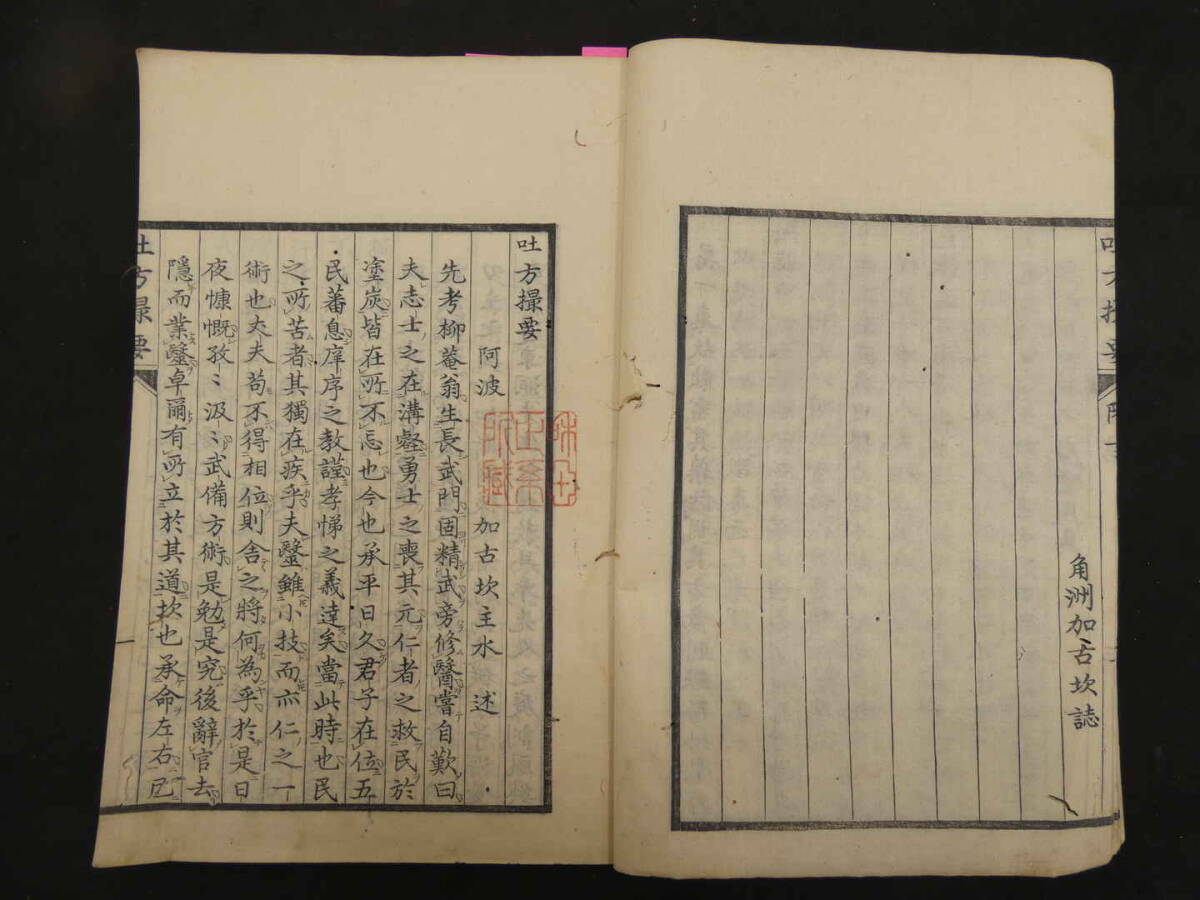 角洲加古坎誌
吐方撮要
阿波 加古坎主水 述
先考柳菴翁生長武門固精武旁修醫嘗自歎曰
夫志士之在溝壑勇士之喪其元仁者之救民於
塗炭皆在所不忘也今也承平日久君子在位五
民蕃息庠序之教謹孝悌之義達矣當此時也民
之所苦者其獨在疾乎夫毉雖小技而亦仁之一
術也大夫苟不得相位則舍之將何為乎於是日
夜慷慨孜〻汲〻武備方術是勉是究後辭官去
隱而業毉卓爾有所立於其道坎也承命左右已
吐方撮要